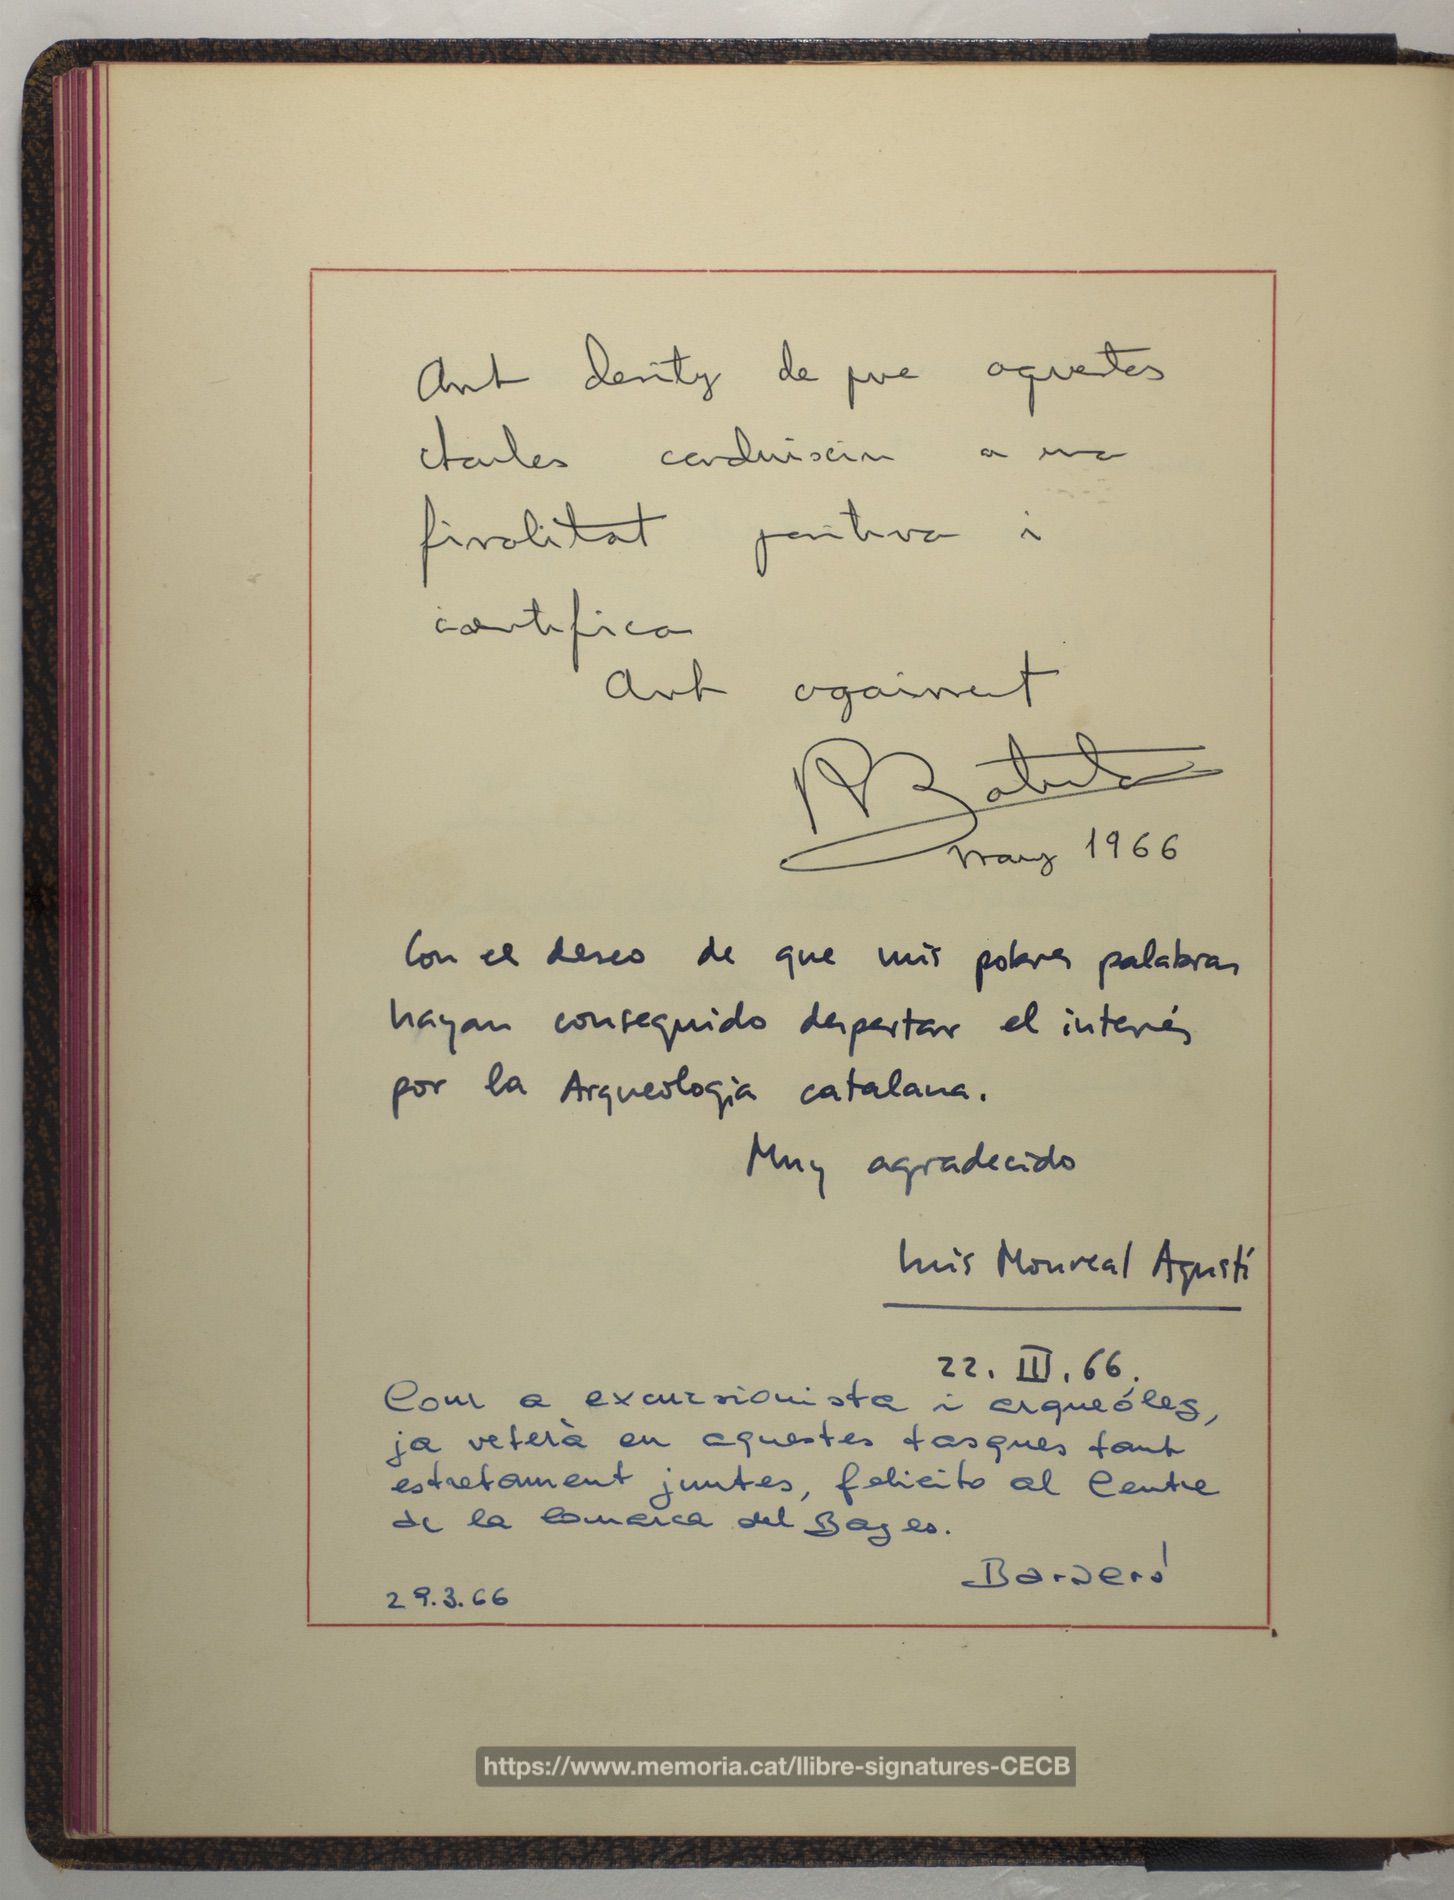 Amb desitg de que aquestes
charles conduiscin a una
finalitat positiva i
cientifica
Amb agraiment
R Batista
març 1966
Con el deseo de que mis pobres palabras
hayan conseguido despertar el interés
por la Arqueologia catalana.
Muy agradecido
Luis Monreal Agustí
22. III. 66.
Com a excursionista i arqueóleg,
ja veterà en aquestes tasques tant
estretament juntes, felicito al Centre
de la Comarca del Bages.
Barberó
29.3.66
https://www.memoria.cat/llibre-signatures-CECB